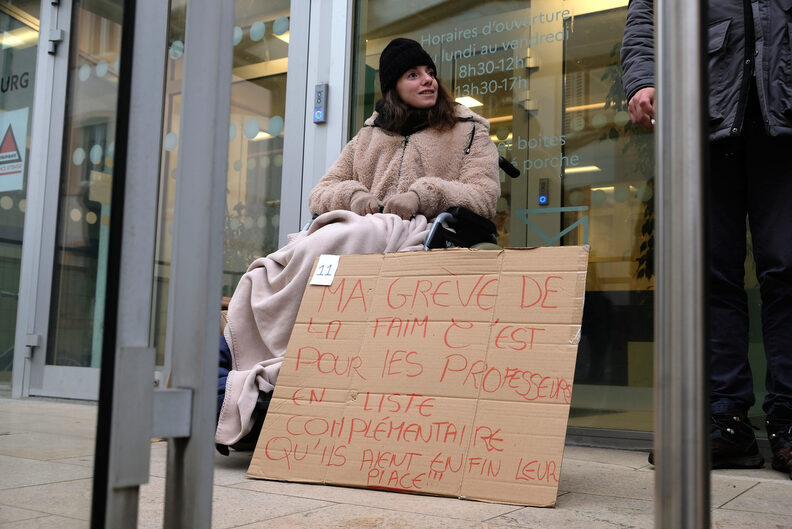 Horaires d'ouverture
lundi au vendredi
8h30-12h
13h30-17h
boites
porche
BURG
11
MA GRÈVE DE
LA FAIM C'EST
POUR LES PROFESSEURS
EN LISTE
COMPLÉMENTAIRE
QU'ILS AIENT ENFIN LEUR
PLACE!!!